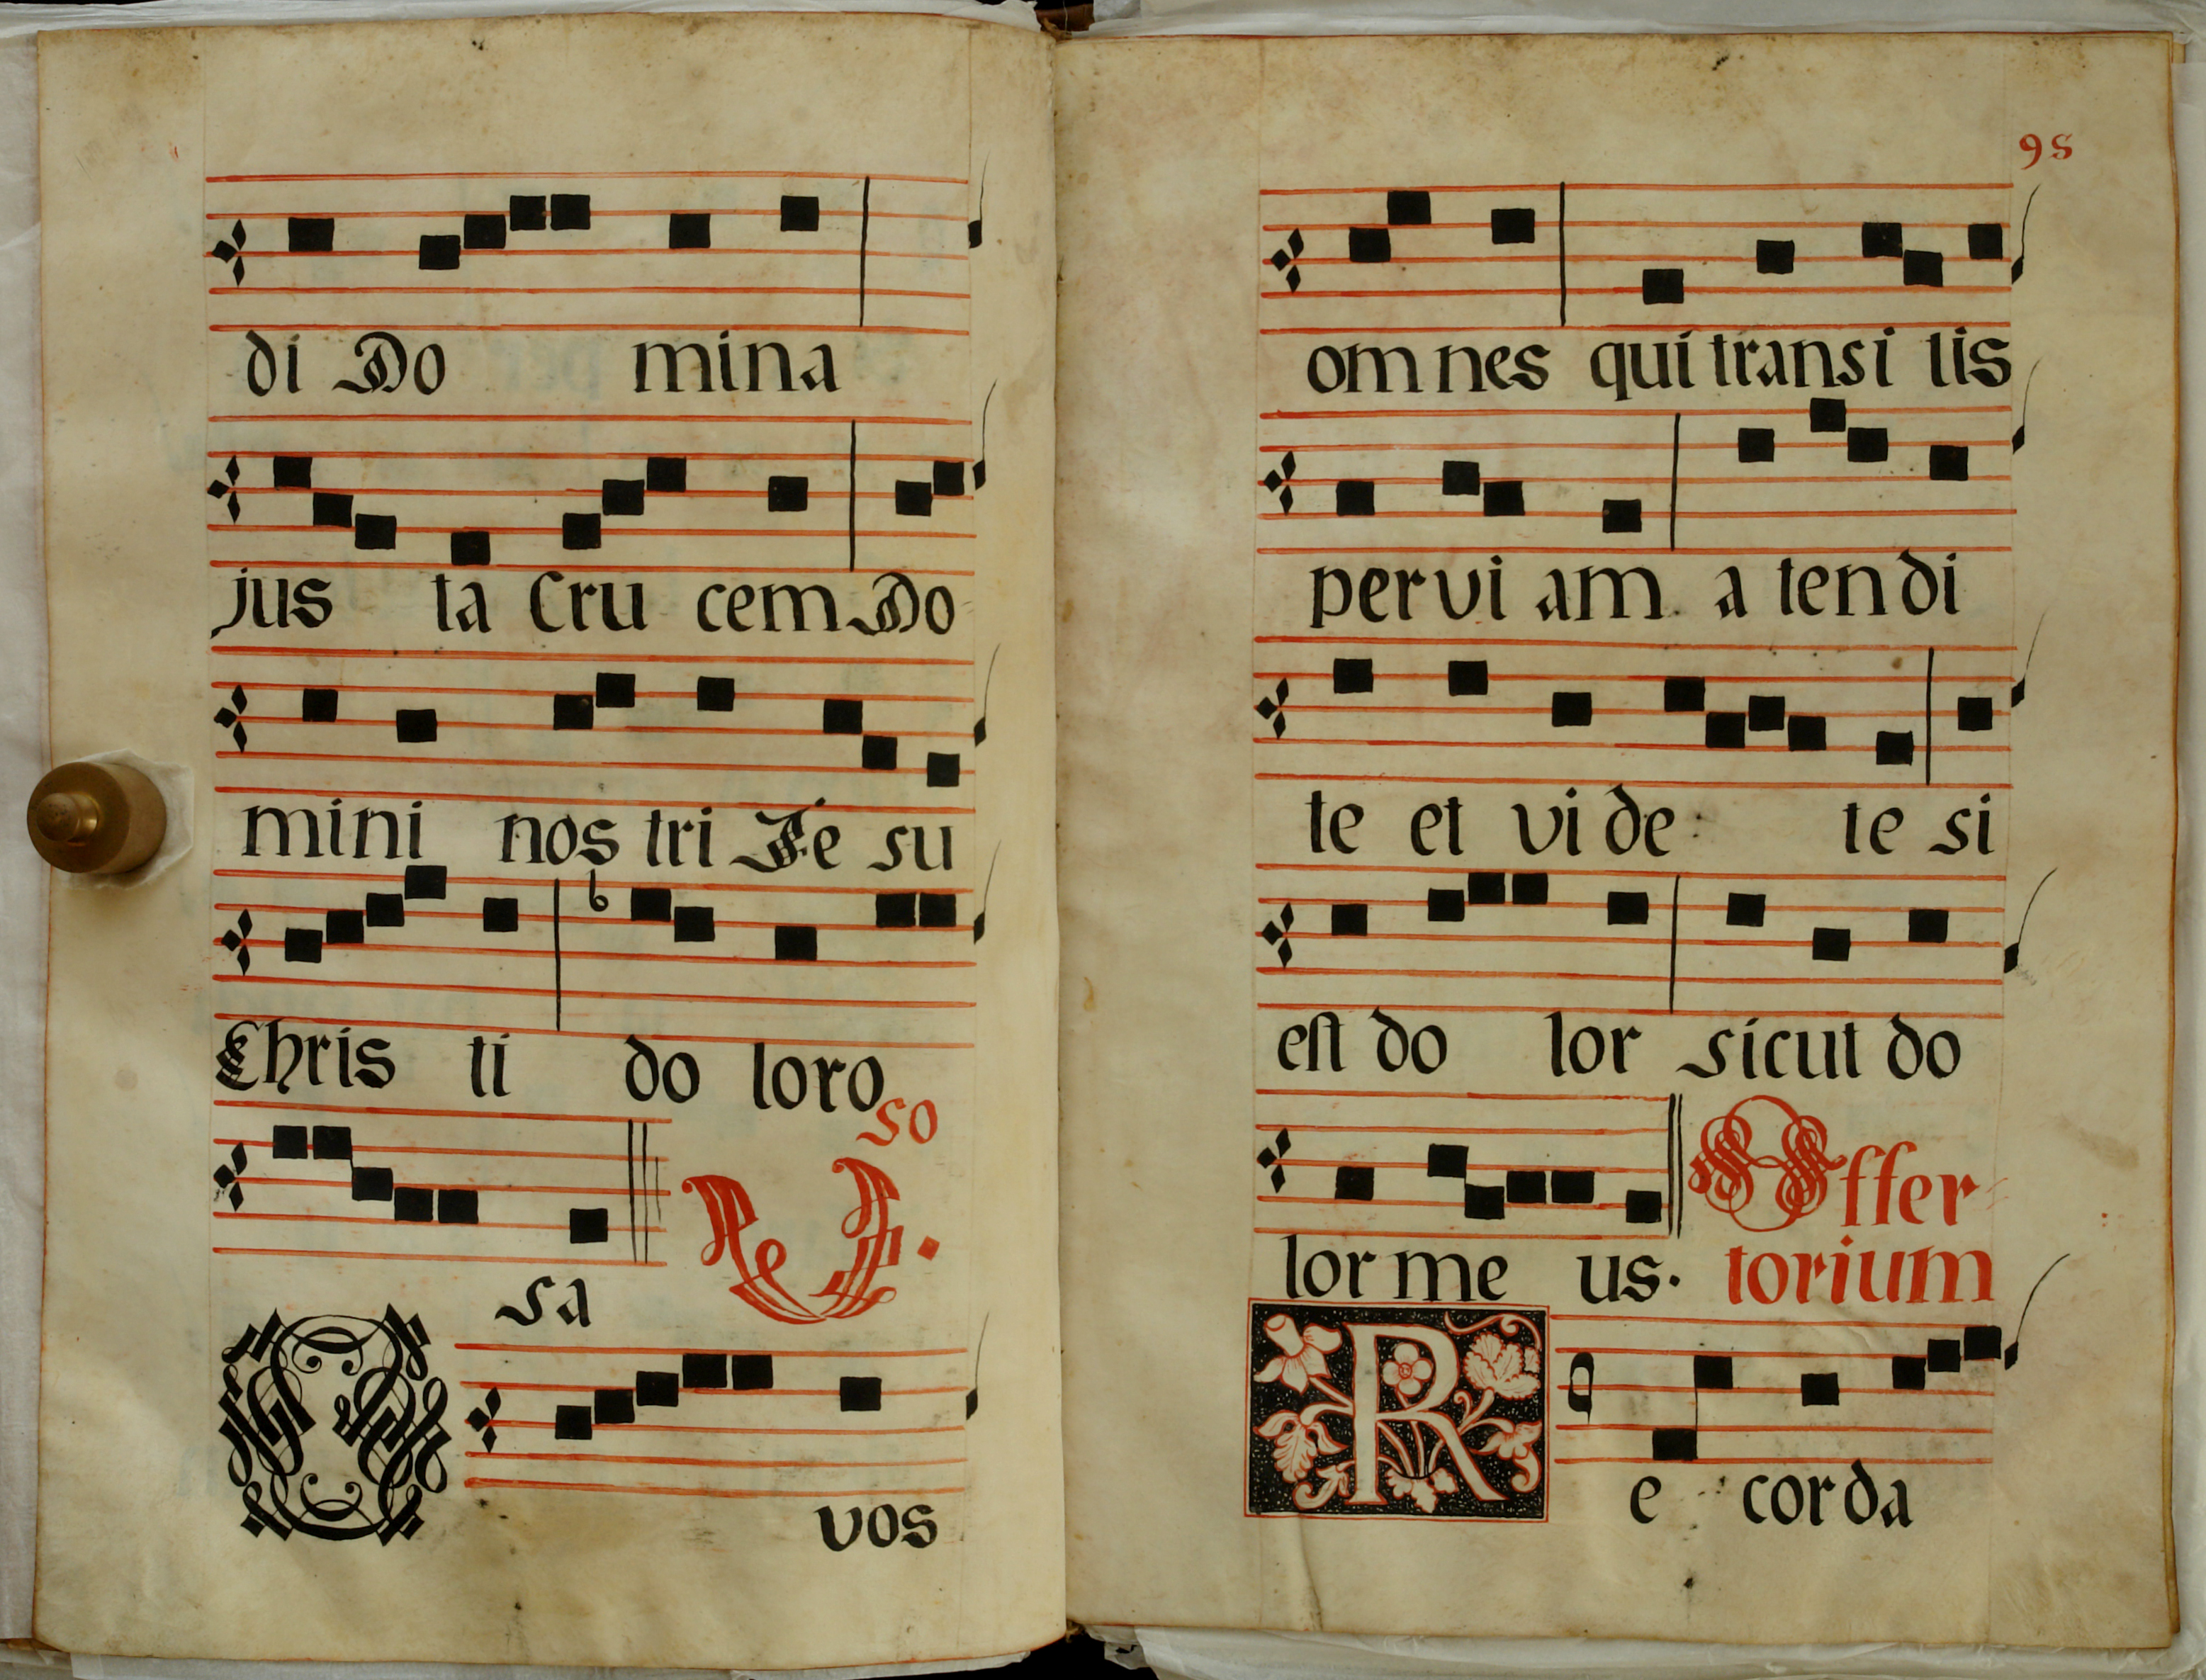 di Do mina
jus ta Cru cem Do
mini nos tri Je su
Chris ti do loro
so
sa
O vos
95
om nes qui transi tis
per vi am a ten di
te et vi de te si
est do lor sicut do
lor me us. Offer
torium
R e corda